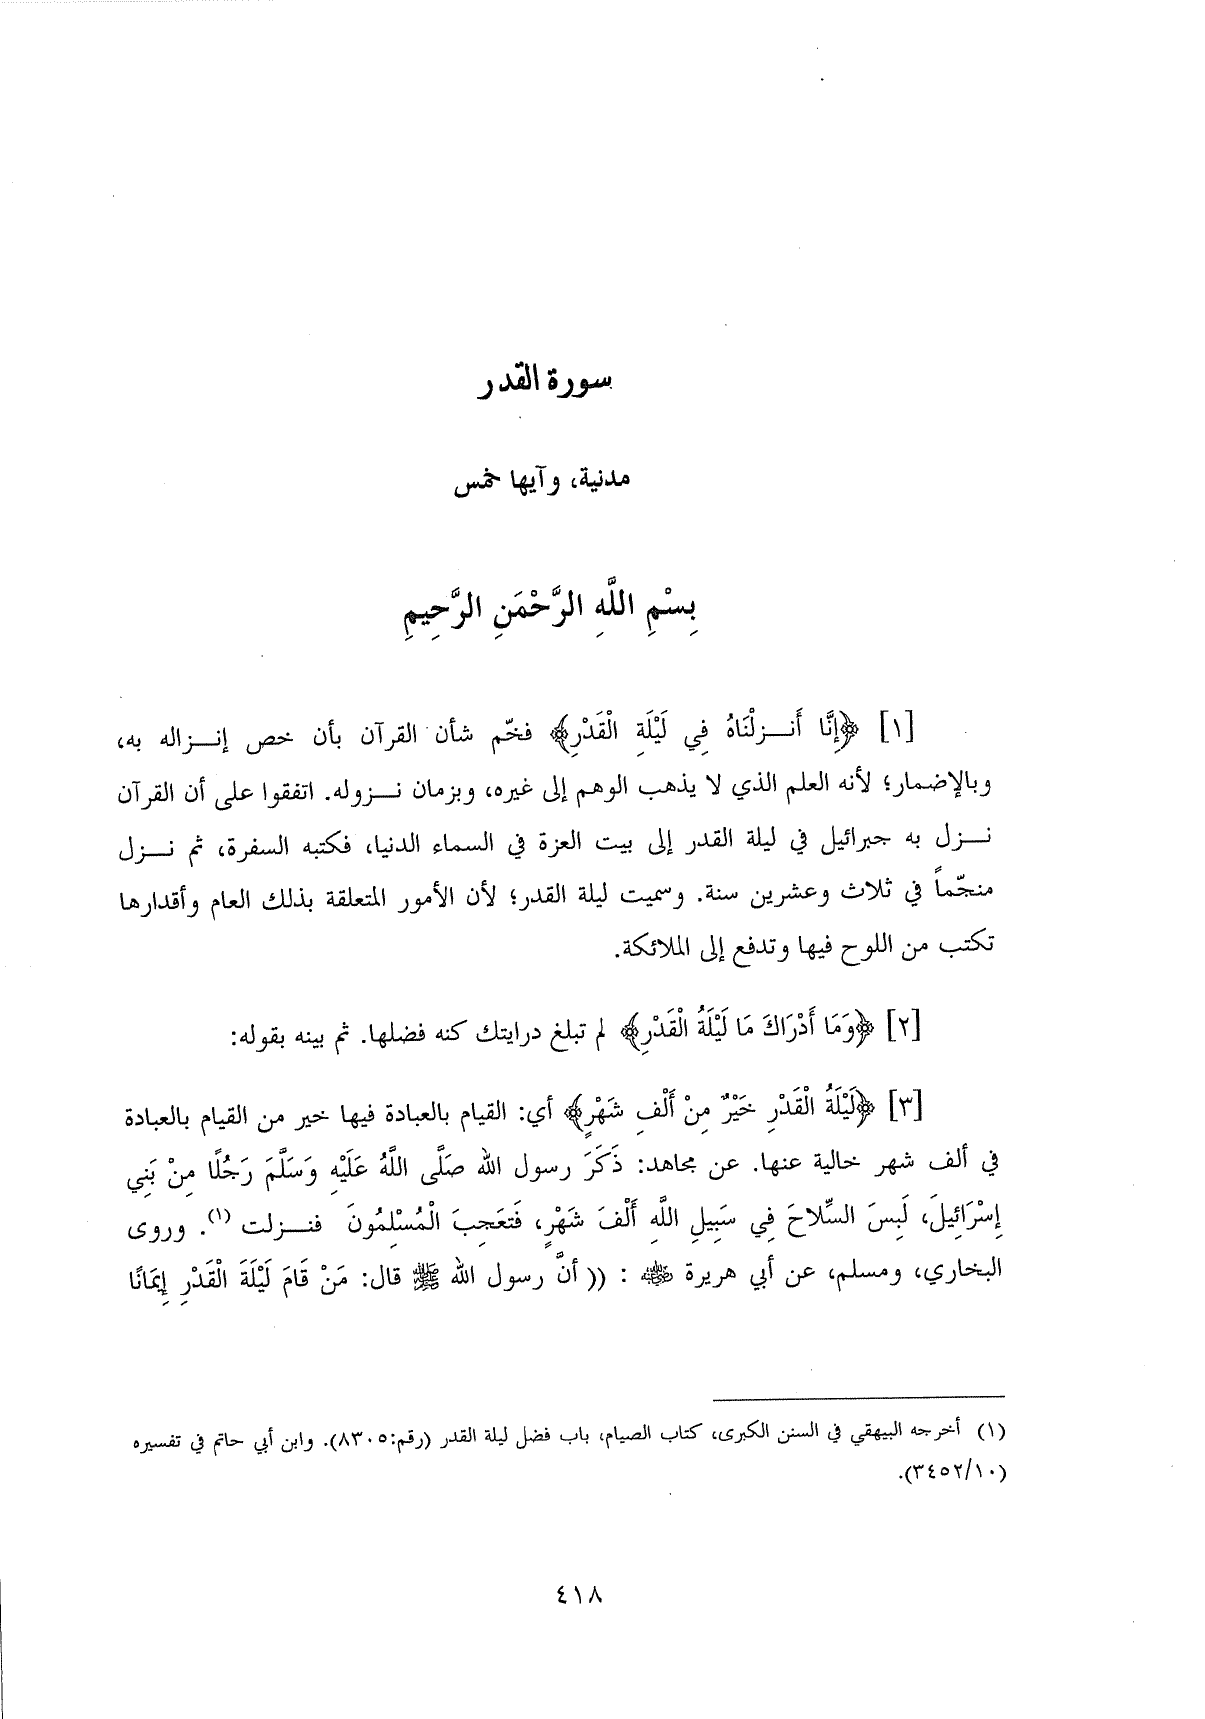 سورة القدر
مدنية، وآيها خمس
بِسْمِ اللَّهِ الرَّحْمَنِ الرَّحِيمِ
[١] ﴿إِنَّا أَنــزلْنَاهُ فِي لَيْلَةِ الْقَدْرِ﴾ فخّم شأن القرآن بأن خص إنــزاله به،
وبالإضمار؛ لأنه العلم الذي لا يذهب الوهم إلى غيره، وبزمان نــزوله. اتفقوا على أن القرآن
نــزل به جبرائيل في ليلة القدر إلى بيت العزة في السماء الدنيا، فكتبه السفرة، ثم نــزل
منجّماً في ثلاث وعشرين سنة. وسميت ليلة القدر؛ لأن الأمور المتعلقة بذلك العام وأقدارها
تكتب من اللوح فيها وتدفع إلى الملائكة.
[٢] ﴿وَمَا أَدْرَاكَ مَا لَيْلَةُ الْقَدْرِ﴾ لم تبلغ درايتك كنه فضلها. ثم بينه بقوله:
[٣] ﴿لَيْلَةُ الْقَدْرِ خَيْرٌ مِنْ أَلْفِ شَهْرٍ﴾ أي: القيام بالعبادة فيها خير من القيام بالعبادة
في ألف شهر خالية عنها. عن مجاهد: ذَكَرَ رسول الله صَلَّى اللَّهُ عَلَيْهِ وَسَلَّمَ رَجُلًا مِنْ بَنِي
إِسْرَائِيلَ، لَبِسَ السِّلَاحَ فِي سَبِيلِ اللَّهِ أَلْفَ شَهْرٍ، فَتَعَجبَ الْمُسْلِمُونَ فنــزلت (١). وروى
البخاري، ومسلم، عن أبي هريرة ﵁ : (( أنَّ رسول الله ﷺ قال: مَنْ قَامَ لَيْلَةَ الْقَدْرِ إِيمَانًا
(١) أخرجه البيهقي في السنن الكبرى، كتاب الصيام، باب فضل ليلة القدر (رقم:٨٣٠٥). وابن أبي حاتم في تفسيره
(٣٤٥٢/١٠).
٤١٨